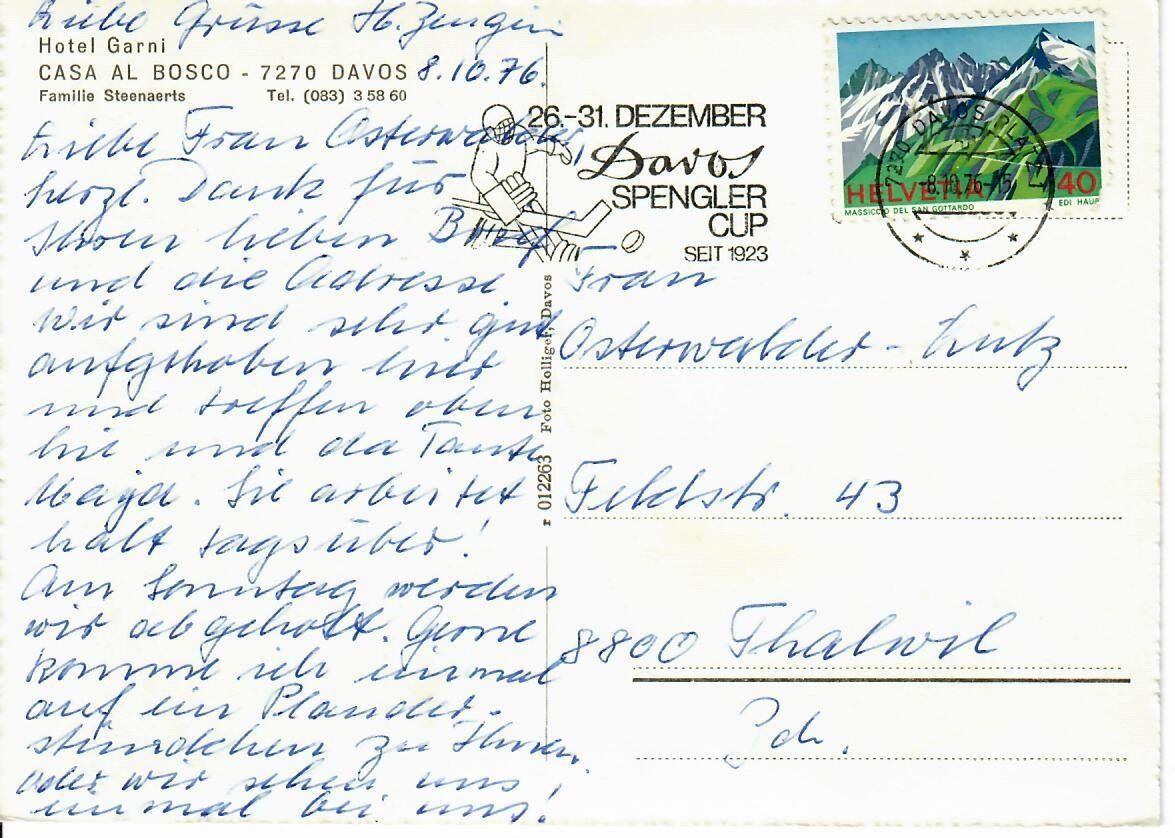 Liebe Grüsse H. Zengin
Hotel Garni
CASA AL BOSCO - 7270 DAVOS
8.10.76.
Familie Steenaerts Tel. (083) 3 58 60
Liebe Frau Osterwalder,
herzl. Dank für
Ihren lieben Brief
und die Adresse
Wir sind sehr gut
aufgehoben hier
und treffen oben
hie und da Tante
Sie arbeitet
halt tagsüber!
Am Sonntag werden
wir abgeholt. Gerne
komme ich einmal
auf ein Plauder-
stündchen zu Ihnen.
oder wir sehen uns
einmal bei uns!
r 012263 Foto Holliger, Davos
26.-31. DEZEMBER
Davos
SPENGLER
CUP
SEIT 1923
HELVETIA 40
MASSICCIO DEL SAN GOTTARDO
EDI HAUR
7270 DAVOS PLATZ
8.10.76-15
Frau
Osterwalder - Lutz
Feldstr. 43
8800 Thalwil
Zch.